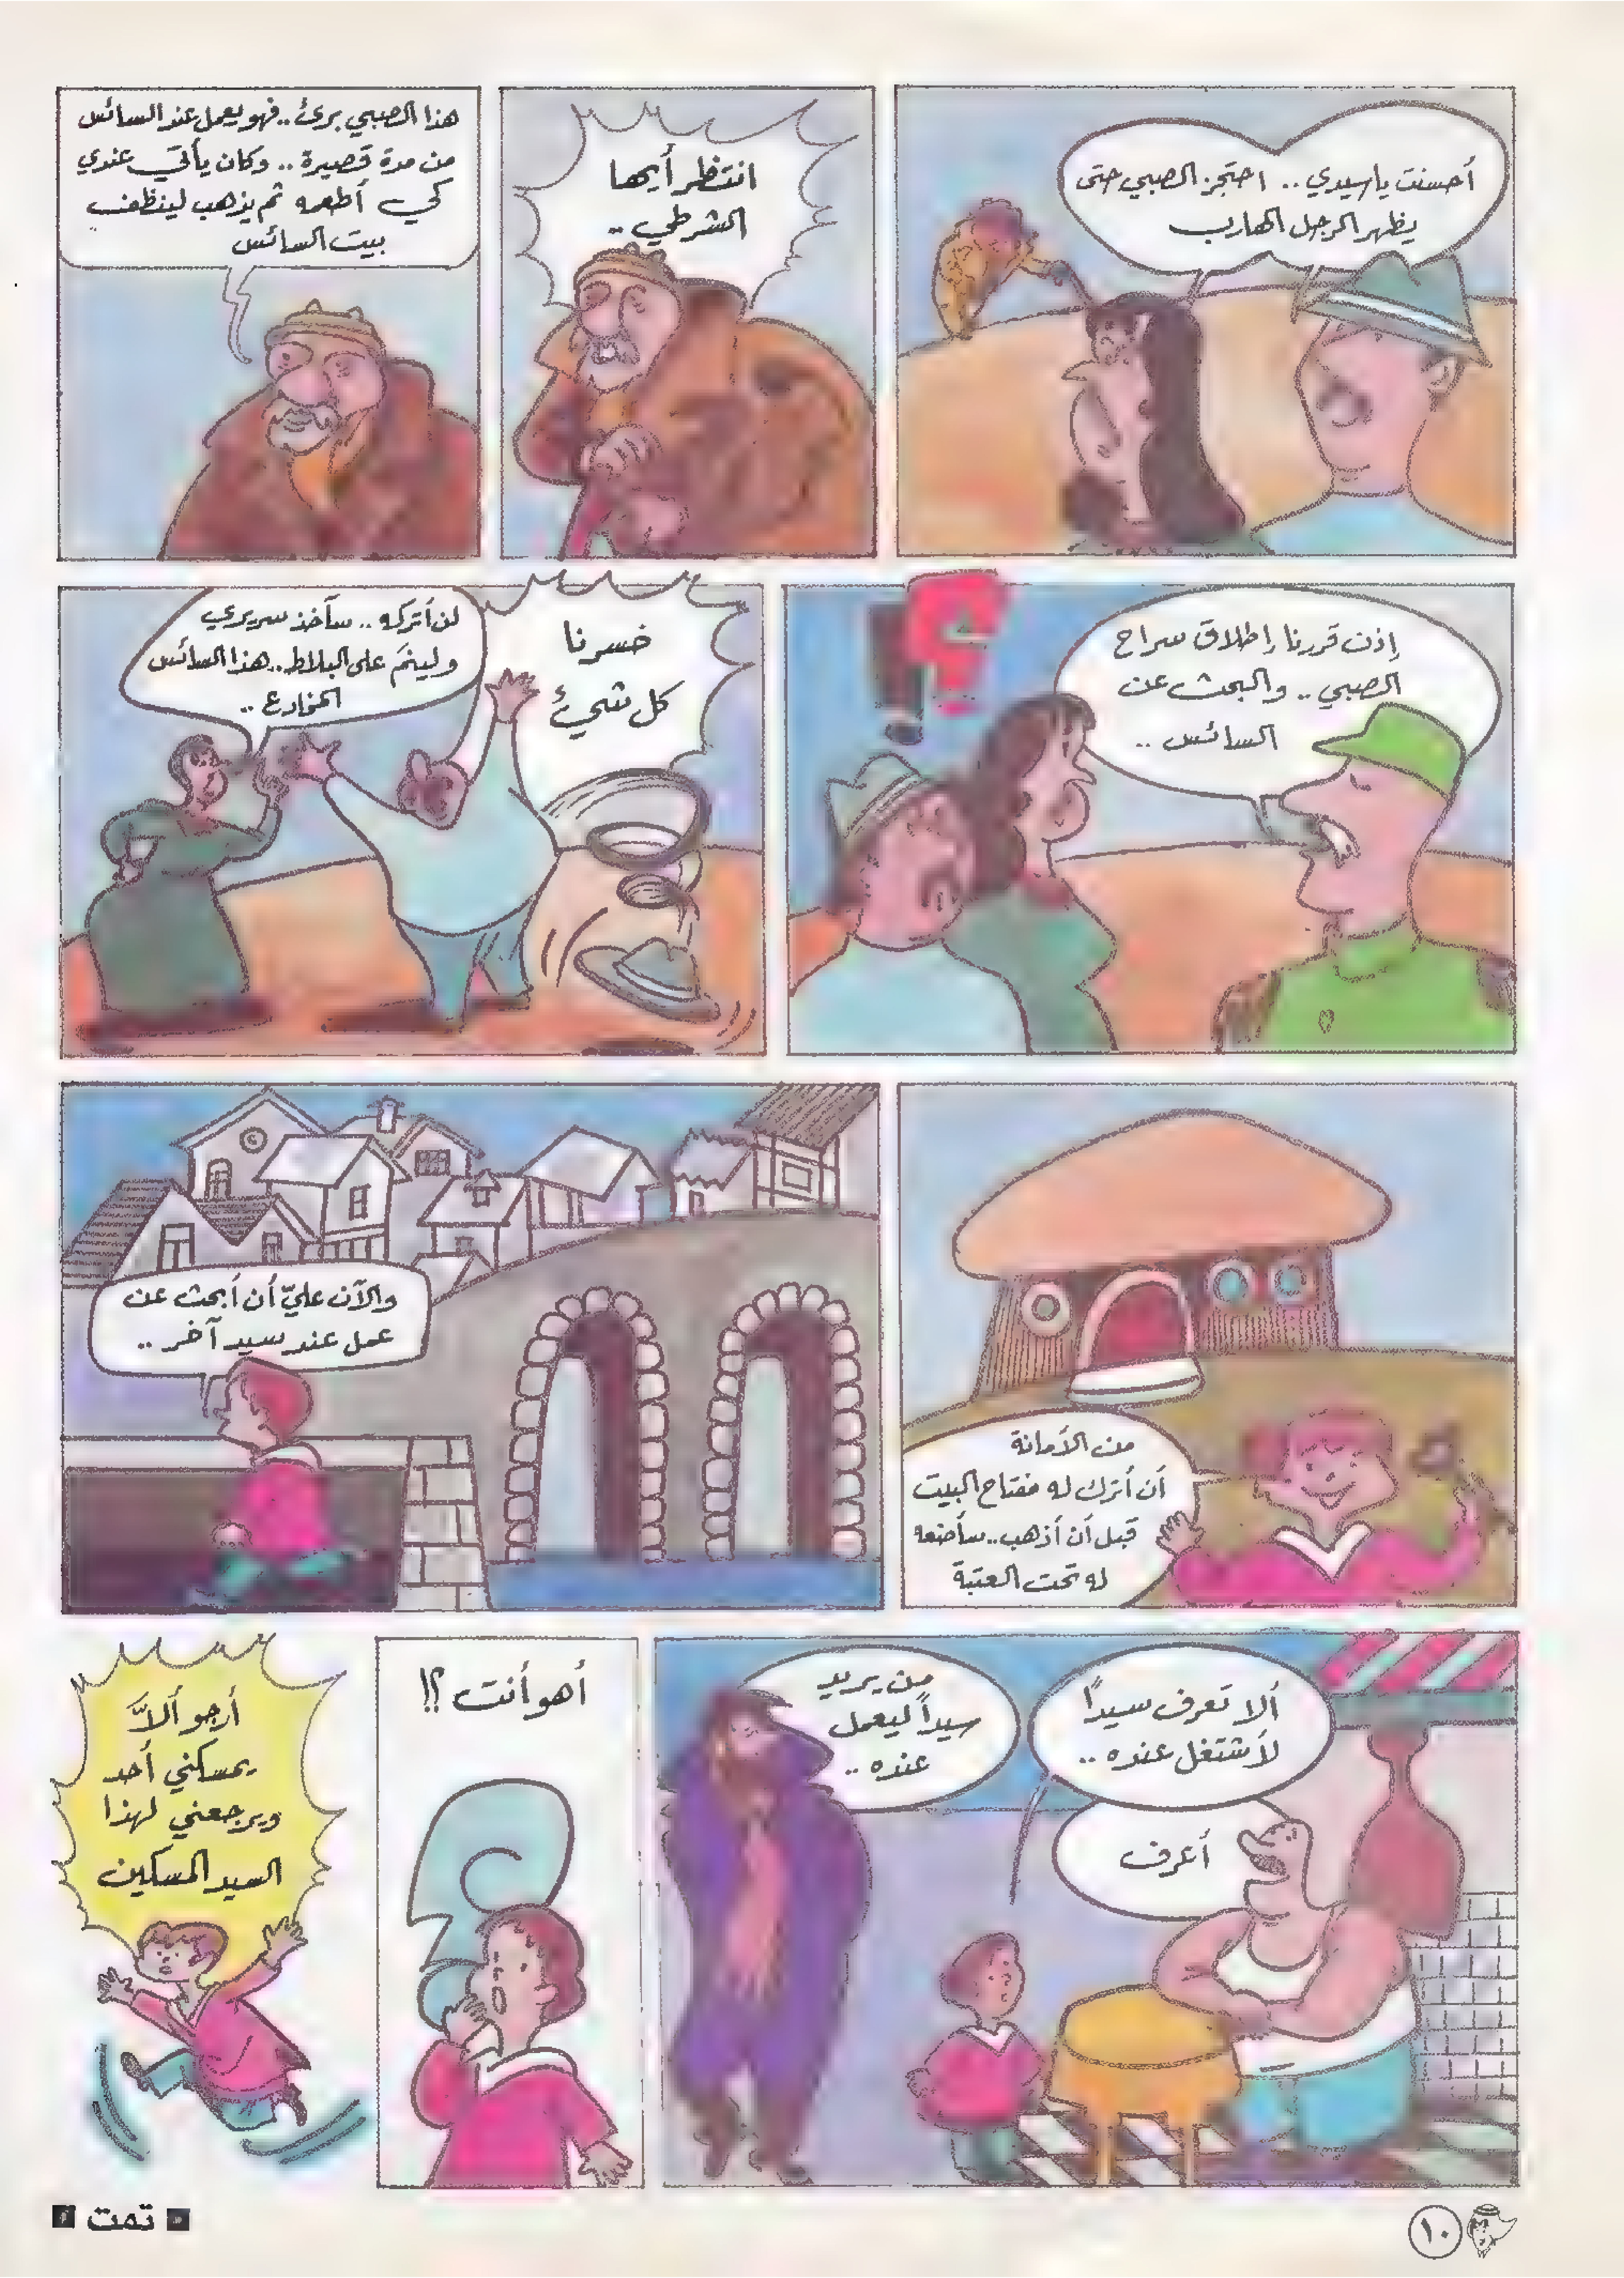 أحسنت يا سيدي .. احتجز الصبي حتى
يظهر الرجل الهارب
انتظر أيها
الشرطي ..
هذا الصبي برئ .. فهو يعمل عند السائس
من مدة قصيرة .. وكان يأتي عندي
كي أطعمه ثم يذهب لينظف
بيت السائس
إذن قررنا إطلاق سراح
الصبي .. والبحث عن
السائس ..
خسرنا
كل شيئ
لن أتركه .. سآخذ سريري
ولينم على البلاط .. هذا السائس
المخادع ..
من الأمانة
أن أترك له مفتاح البيت
قبل أن أذهب .. سأضعه
له تحت العتبة
والآن عليّ أن أبحث عن
عمل عند سيد آخر ..
ألا تعرف سيداً
لأشتغل عنده ..
أعرف
من يريد
سيداً ليعمل
عنده ..
أهو أنت ؟!
أرجو ألاَّ
يمسكني أحد
ويرجعني لهذا
السيد المسكين
تمت
١٠